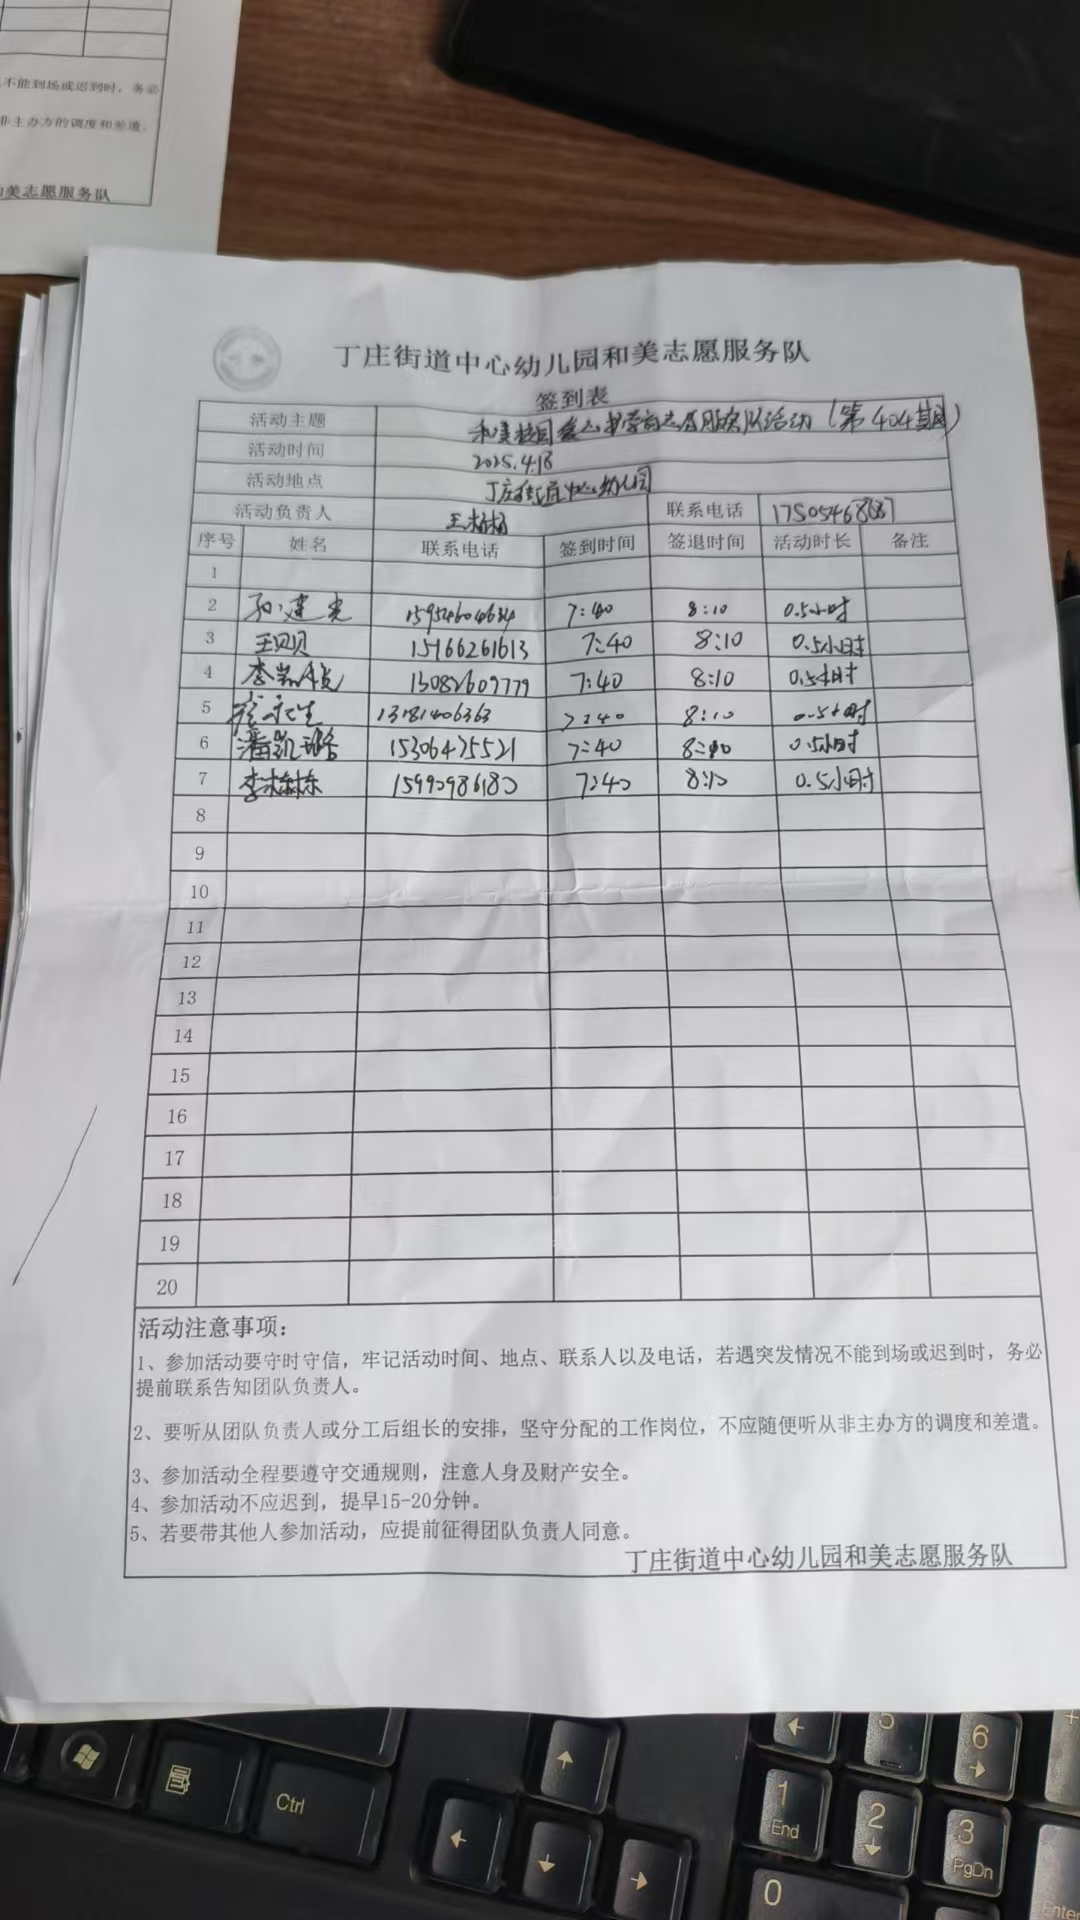 不能到场或迟到时，务必
非主办方的调度和差遣。
和美志愿服务队
丁庄街道中心幼儿园和美志愿服务队
签到表
活动主题 和美校园爱心护学岗志愿服务队活动（第404期）
活动时间 2025.4.18
活动地点 丁庄街道中心幼儿园
活动负责人 王 联系电话
序号 姓名 联系电话 签到时间 签退时间 活动时长 备注
1
2 孙建光 15954604634 7:40 8:10 0.5小时
3 王贝贝 15166261613 7:40 8:10 0.5小时
4 李 13082609779 7:40 8:10 0.5小时
5 13181406363 7:40 8:10 0.5小时
6 潘凯 15306475521 7:40 8:10 0.5小时
7 李 15990986180 7:40 8:10 0.5小时
8
9
10
11
12
13
14
15
16
17
18
19
20
活动注意事项：
1、参加活动要守时守信，牢记活动时间、地点、联系人以及电话，若遇突发情况不能到场或迟到时，务必
提前联系告知团队负责人。
2、要听从团队负责人或分工后组长的安排，坚守分配的工作岗位，不应随便听从非主办方的调度和差遣。
3、参加活动全程要遵守交通规则，注意人身及财产安全。
4、参加活动不应迟到，提早15-20分钟。
5、若要带其他人参加活动，应提前征得团队负责人同意。
丁庄街道中心幼儿园和美志愿服务队
Ctrl
5
6
1
End
2
3
PgDn
0
Enter